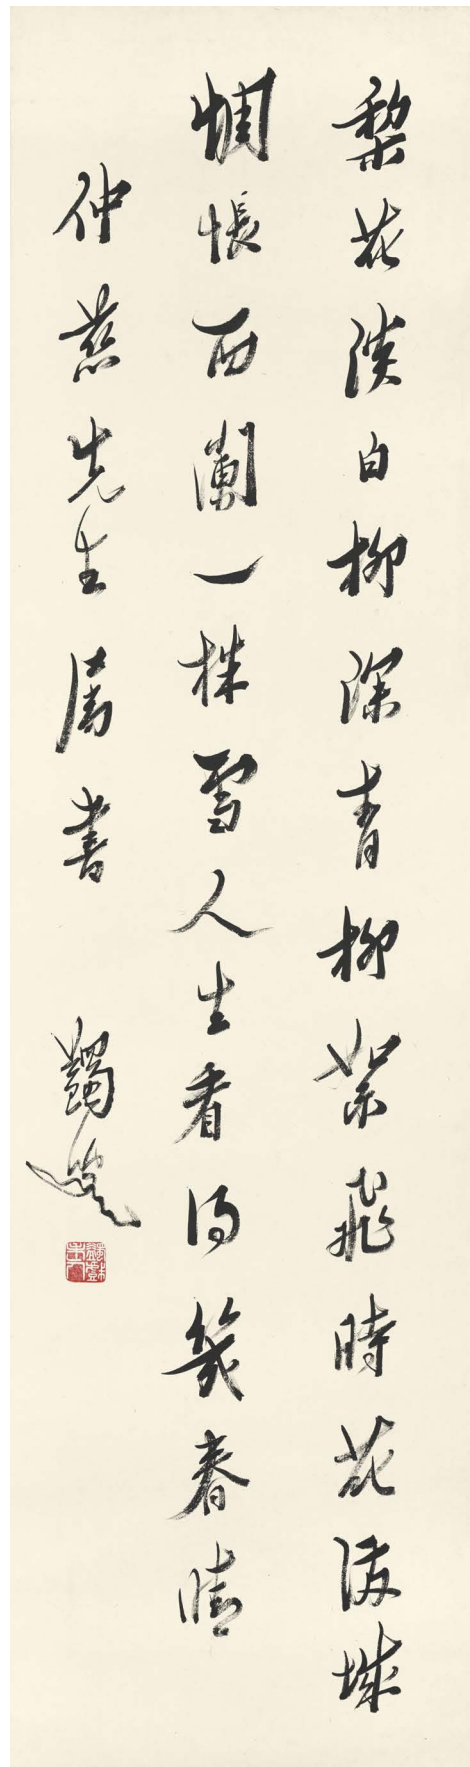 棃花淡白柳深青柳絮飛時花滿城
惆悵西闌一株雪人生看得幾春晴
仲慈先生屬書 蠲叟